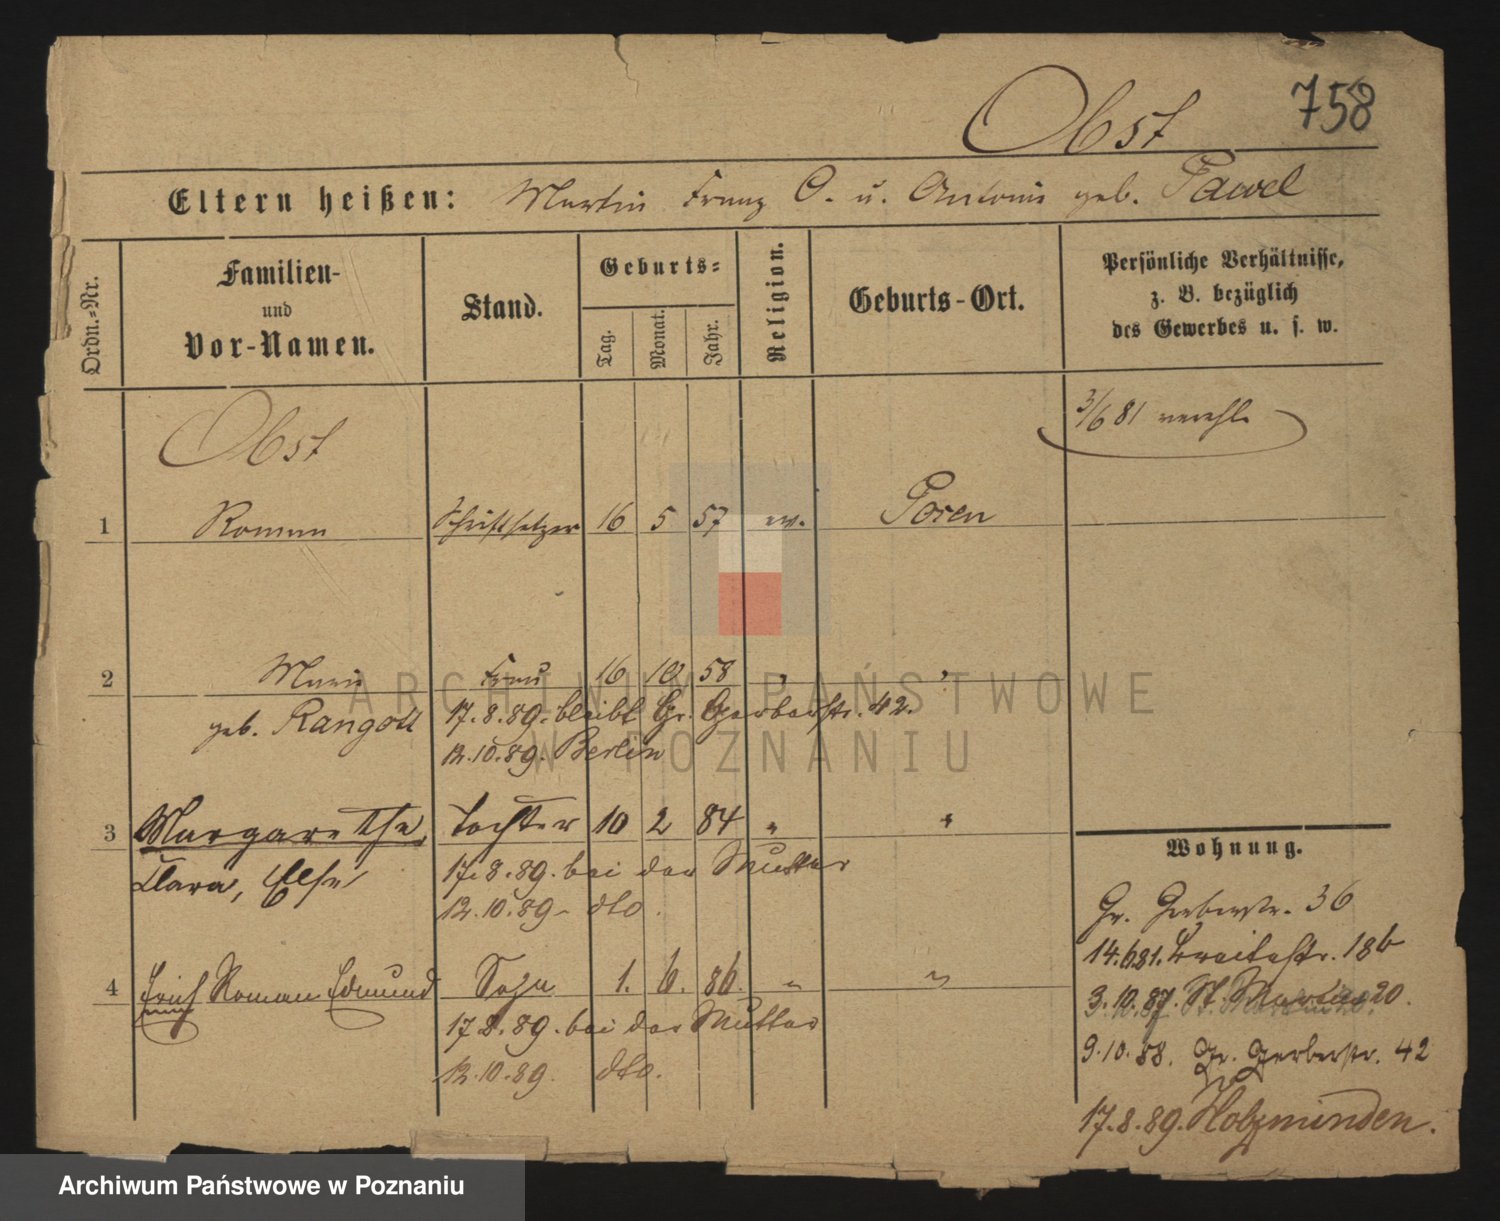 758
Obst
Eltern heißen: Martin Franz O. u. Antonie geb. Pawel
Ordn.-Nr.
Familien-
und
Vor-Namen.
Stand.
Geburts-
Tag. Monat. Jahr.
Religion.
Geburts-Ort.
Persönliche Verhältnisse,
z. B. bezüglich
des Gewerbes u. s. w.
Obst
3/6 81 verehl.
1 Roman Schriftsetzer 16 5 57 ev. Posen
2 Marie Frau 16 10 58 " "
geb. Rangott 17.8.89. bleibt Gr. Gerberstr. 42.
12.10.89. Berlin
3 Margarethe Tochter 10 2 84 " "
Clara, Else 17.8.89. bei der Mutter
12.10.89. dto.
4 Erich Roman Edmund Sohn 1. 6. 86. " "
17.8.89. bei der Mutter
12.10.89. dto.
Wohnung.
Gr. Gerberstr. 36
14.6.81. Breitestr. 18b
3.10.87. St. Martin 20.
9.10.88. Gr. Gerberstr. 42
17.8.89. Holzminden.
ARCHIWUM PAŃSTWOWE
W POZNANIU
Archiwum Państwowe w Poznaniu